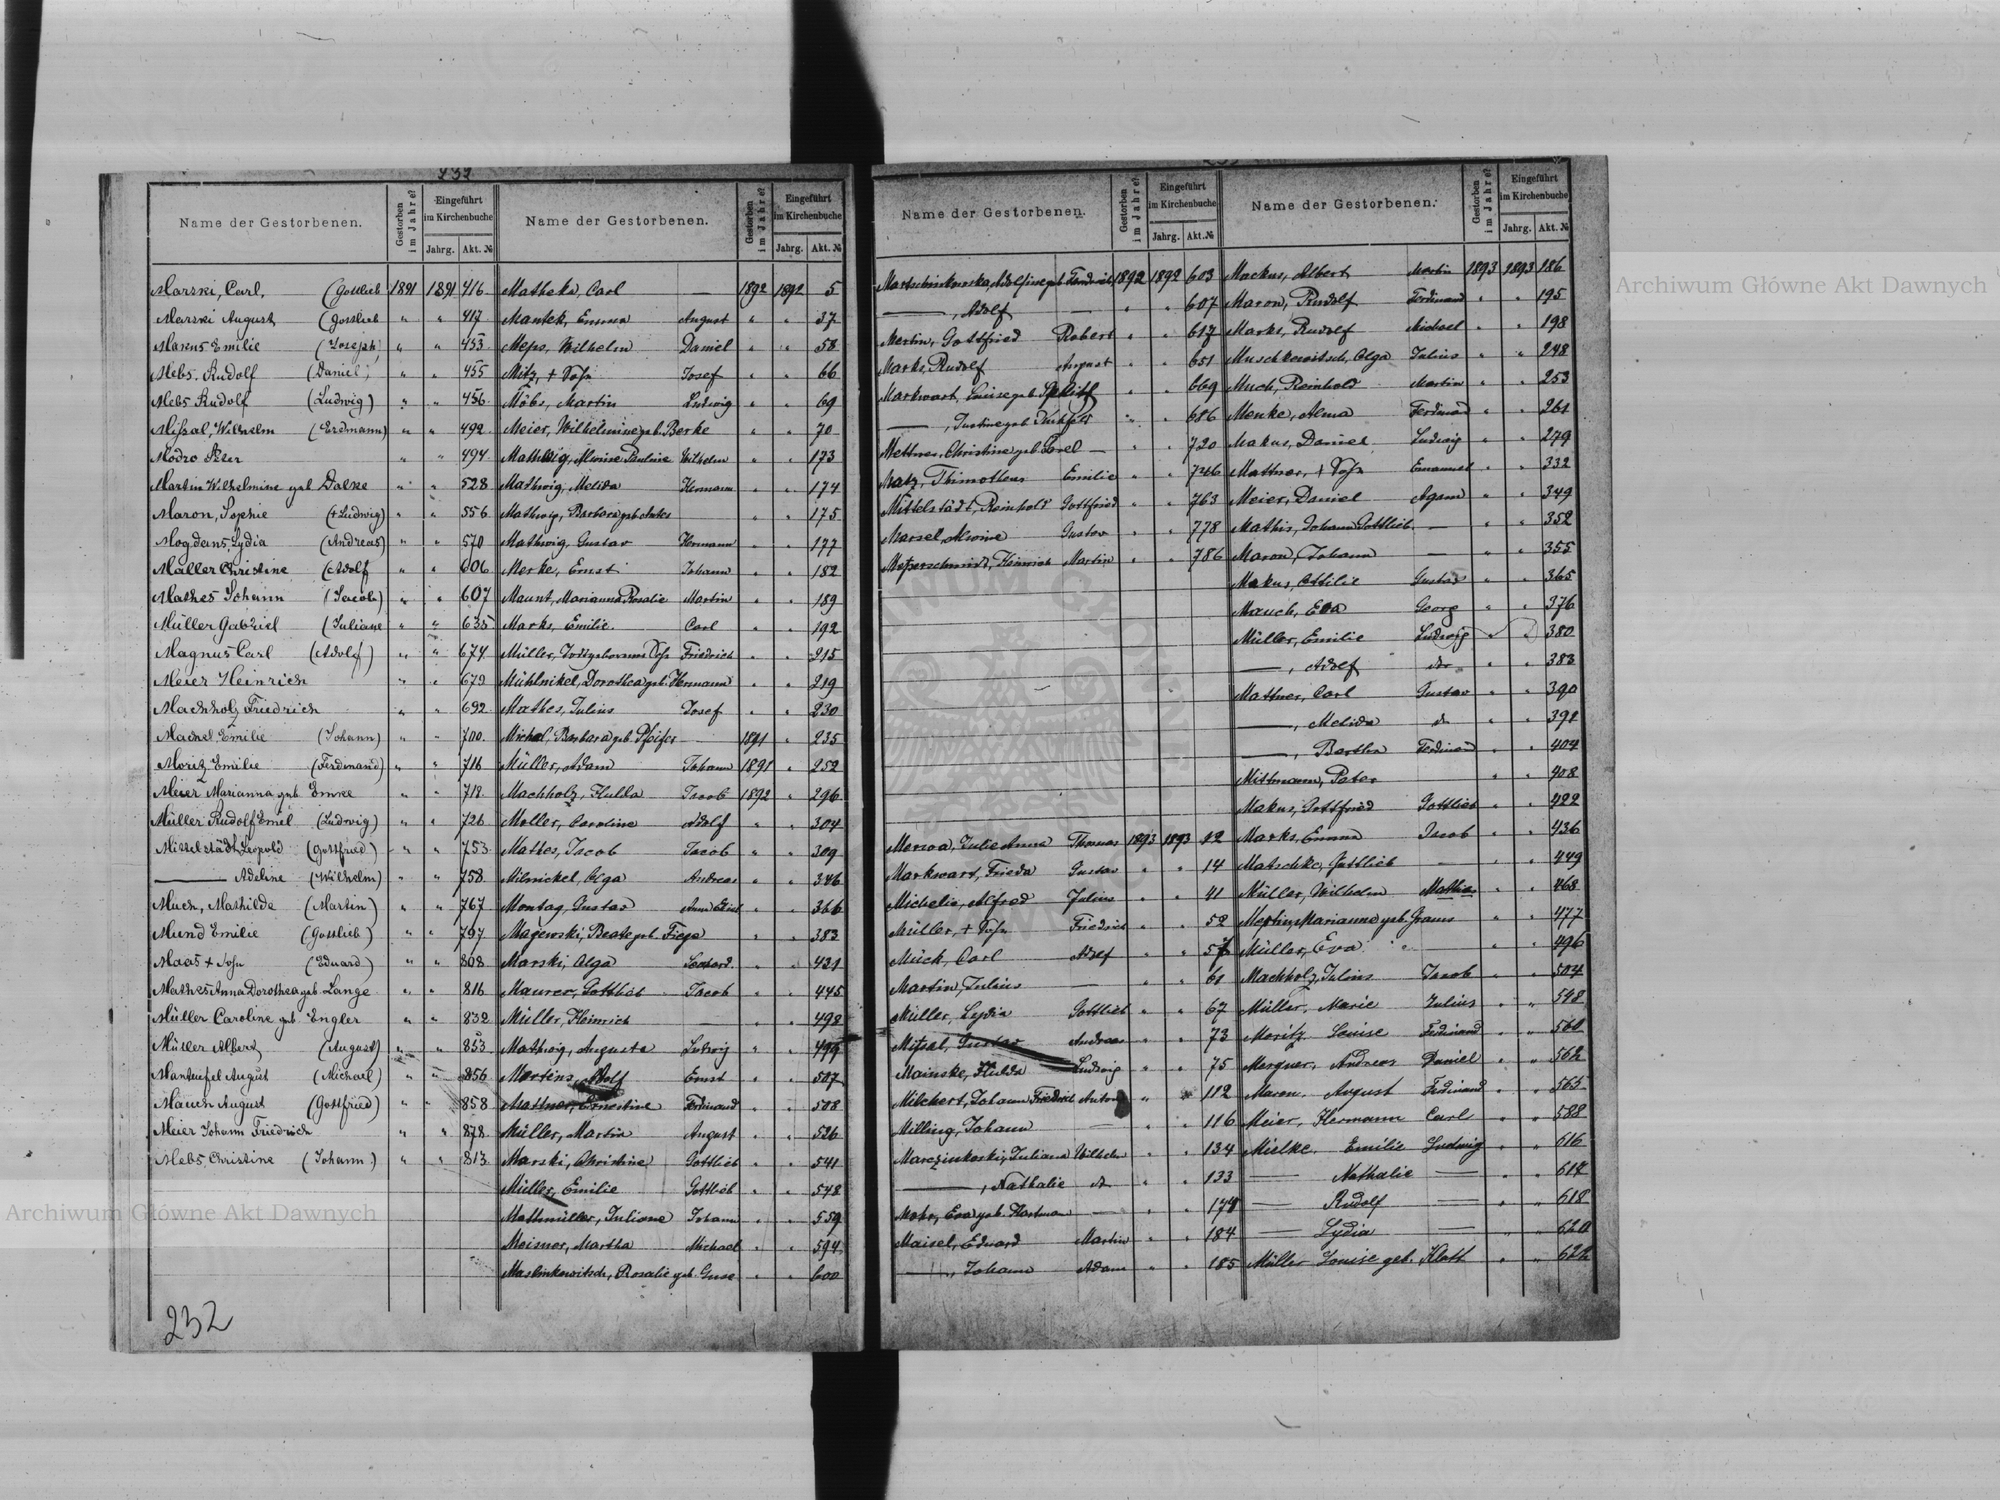 232
Name der Gestorbenen.
Gestorben im Jahre?
Eingeführt im Kirchenbuche
Jahrg. Akt. №
Marski, Carl, (Gottlieb 1891 1891 416
Marski August (Gottlieb " " 417
Makus Emilie (Joseph) " " 453
Mebs, Rudolf (Daniel) " " 455
Mebs Rudolf (Ludwig) " " 456
Mißal, Wilhelm (Erdmann) " " 492
Modro Peter " " 494
Martin Wilhelmine geb Dalke " " 528
Maron, Sophie (+Ludwig) " " 556
Mogdans, Lydia (Andreas) " " 570
Müller Christine (Adolf " " 606
Mathes Johann (Jacob) " " 607
Müller Gabriel (Juliane " " 635
Magnus Carl (Adolf) " " 674
Meier Heinrich " " 679
Machholz Friedrich " " 692
Emilie (Johann) " " 700
Moritz Emilie (Ferdinand) " " 716
Meier Marianna geb. Emke " " 718
Müller Rudolf Emil (Ludwig) " " 726
Mittelstädt Leopold (Gottfried) " " 753
—— Adeline (Wilhelm) " " 758
Much, Mathilde (Martin) " " 767
Mund Emilie (Gottlieb) " " 797
Maas + Sohn (Eduard) " " 808
Mathes Anna Dorothea geb. Lange " " 816
Müller Caroline geb Engler " " 832
Müller Albert (August) " " 853
Manteufel August (Michael) " " 856
Mauch August (Gottfried) " " 858
Meier Johann Friedrich " " 878
Mebs, Christine (Johann) " " 813
232
Name der Gestorbenen.
Gestorben im Jahre?
Eingeführt im Kirchenbuche
Jahrg. Akt. №
Matheka, Carl — 1892 1892 5
Mantek, Emma August " " 37
Meps, Wilhelm Daniel " " 58
Mitz, + Sohn Josef " " 66
Möbs, Martin Ludwig " " 69
Meier, Wilhelmine geb. Berke " " 70
Mathwig, Alwine Pauline Wilhelm " " 173
Mathwig, Melida Hermann " " 174
Mathwig, Barbara geb. " " 175
Mathwig, Gustav Hermann " " 177
Merke, Ernst Johann " " 182
Maunt, Marianna Rosalie Martin " " 189
Marks, Emilie Carl " " 192
Müller, Todtgeborener Sohn Friedrich " " 215
Mühlnikel, Dorothea geb. Hermann " " 219
Mathes, Julius Josef " " 230
Michel, Barbara geb. Pfeifer 1891 " 235
Müller, Adam Johann 1891 " 252
Machholz, Hulda Jacob 1892 " 296
Moller, Caroline Adolf " " 304
Mathes, Jacob Jacob " " 309
Milnickel, Olga Andreas " " 346
Montag, Gustav " " 366
Majewski, Beate geb. Fiege " " 383
Marski, Olga " " 431
Maurer, Gottlieb Jacob " " 445
Müller, Heinrich — " " 498
Mathwig, Auguste Ludwig " " 499
Martins, Adolf Ernst " " 507
Mattner, Ernestine Ferdinand " " 508
Müller, Martin August " " 526
Marski, Christine Gottlieb " " 541
Müller, Emilie Gottlieb " " 548
Mathmüller, Juliane Johann " " 559
Meisner, Martha Michael " " 594
Maslinkowitsch, Rosalie geb. Guse " " 600
Name der Gestorbenen.
Gestorben im Jahre?
Eingeführt im Kirchenbuche
Jahrg. Akt. №
1892 1892 603
——, Adolf — " " 607
Martin, Gottfried Robert " " 617
Marks, Rudolf August " " 651
Markwart, Luise geb. " " 669
——, Justine geb. " " 686
Mettner, Christine geb. — " " 720
Matz, Thimotheus Emilie " " 746
Mittelstädt, Reinhold Gottfried " " 763
Marsel, Alwine Gustav " " 778
Meßerschmidt, Heinrich Martin " " 786
Julie Anna Thomas 1893 1893 12
Markwart, Frieda Gustav " " 14
Michelis, Alfred Julius " " 41
Müller, + Sohn Friedrich " " 52
Mück, Carl Adolf " " 57
Martin, Julius — " " 61
Müller, Lydia Gottlieb " " 67
Mißal, Gustav Andreas " " 73
Mainske, Hulda Ludwig " " 75
Milchert, Johann Friedrich Anton " " 112
Milling, Johann — " " 116
Marczinkoski, Juliana Wilhelm " " 134
——, Nathalie d " " 133
Mohr, Eva geb. Hartman — " " 174
Maisel, Eduard Martin " " 184
——, Johann Adam " " 185
Name der Gestorbenen.
Gestorben im Jahre?
Eingeführt im Kirchenbuche
Jahrg. Akt. №
Mackus, Albert Martin 1893 1893 186
Maron, Rudolf Ferdinand " " 195
Marks, Rudolf Michael " " 198
Muschkewitsch, Olga Julius " " 248
Much, Reinhold Martin " " 253
Menke, Alma Ferdinand " " 261
Makus, Daniel Ludwig " " 279
Mattner, + Sohn Emanuel " " 332
Meier, Daniel " " 349
Mathis, Johann Gottlieb — " " 352
Maron, Johann — " " 355
Makus, Ottilie Gustav " " 365
Mauch, Eva Georg " " 376
Müller, Emilie Ludwig " " 380
——, Adolf do " " 383
Mattner, Carl Gustav " " 390
——, Melida do " " 391
——, Bertha Ferdinand " " 404
Mittmann, Peter " " 408
Makus, Gottfried Gottlieb " " 422
Marks, Emma Jacob " " 436
Matschke, Gottlieb — " " 449
Müller, Wilhelm Mathias " " 468
Martin, Marianna geb. Grams " " 477
Müller, Eva — " " 496
Machholz, Julius Jacob " " 504
Müller, Marie Julius " " 548
Moritz Louise Ferdinand " " 560
Mergner, Andreas Daniel " " 562
Maron, August Ferdinand " " 565
Meier, Hermann Carl " " 588
Mielke, Emilie Ludwig " " 616
—— Nathalie —— " " 617
—— Rudolf —— " " 618
—— Lydia —— " " 620
Müller Louise geb. Klatt " " 622
Archiwum Główne Akt Dawnych
Archiwum Główne Akt Dawnych